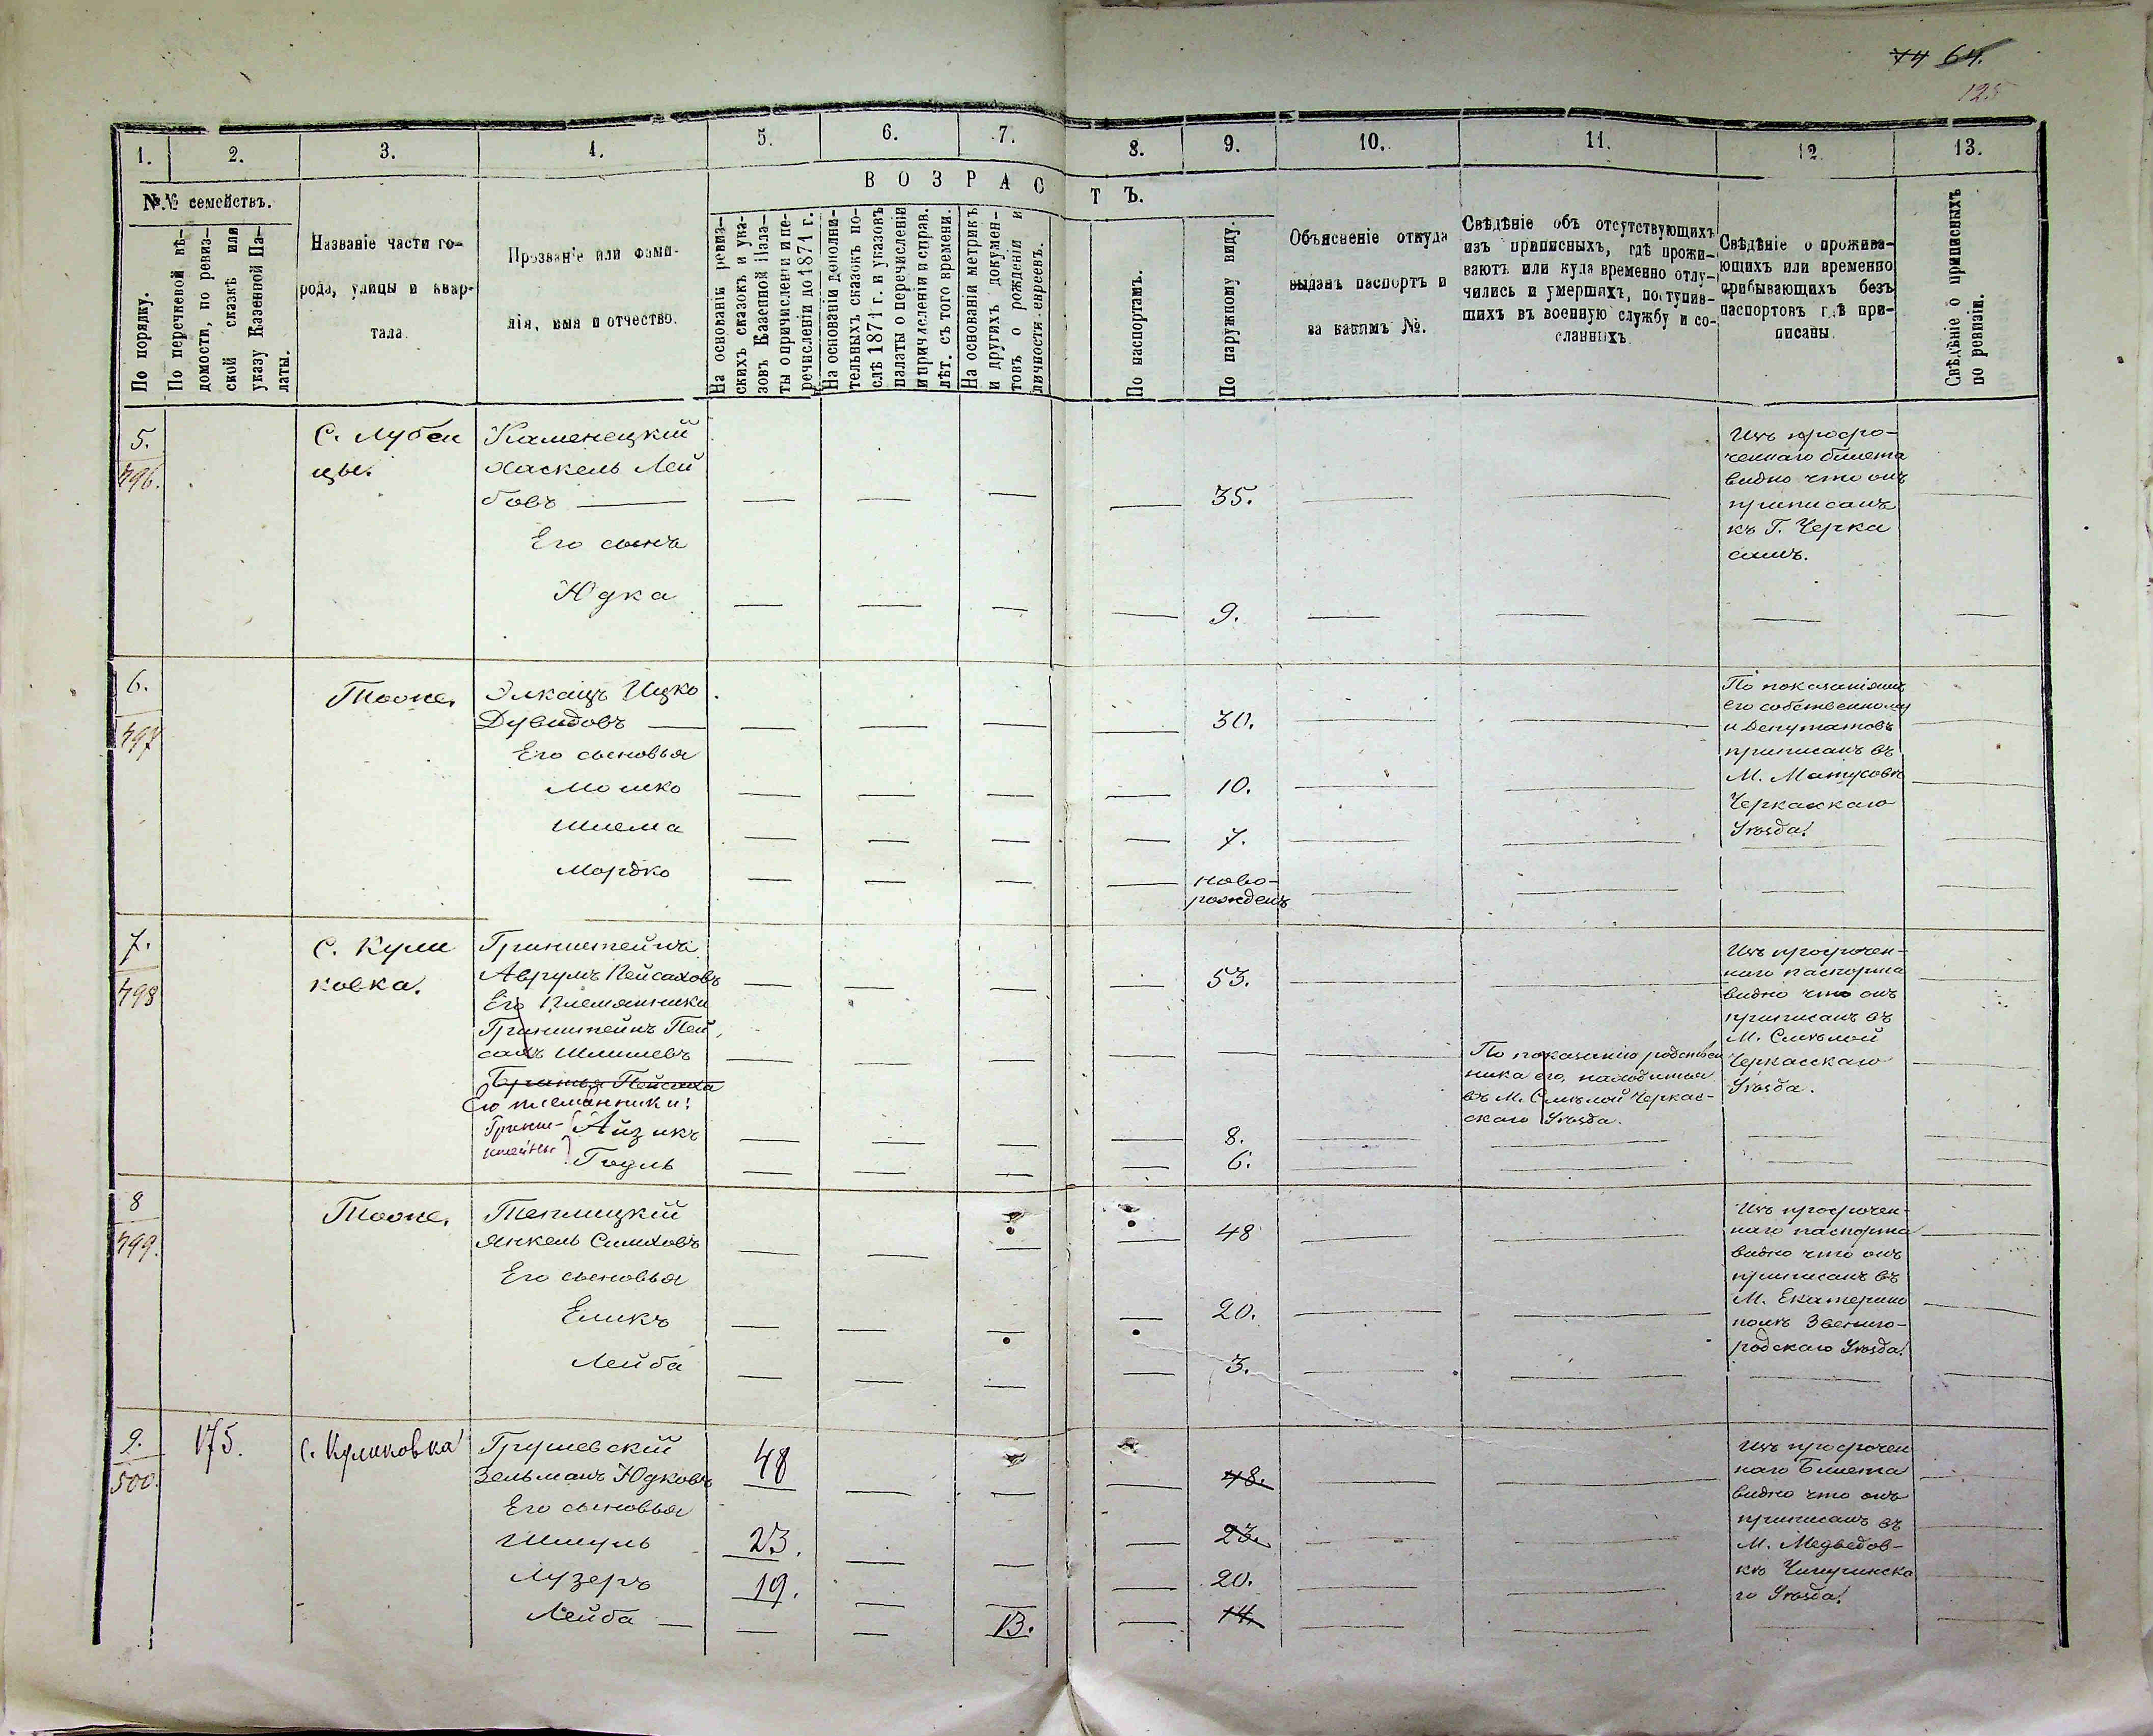 74 64.
125
1.
2.
3.
4.
5.
6.
7.
8.
9.
10.
11.
12.
13.
№№ семействъ.
По порядку.
По перечневой вѣ-
домости, по ревиз-
ской сказкѣ или
указу Казенной Па-
латы.
Названіе части го-
рода, улицы и квар-
тала.
Прозваніе или фами-
лія, имя и отчество.
ВОЗРАСТЪ.
На основаніи ревиз-
скихъ сказокъ и ука-
зовъ Казенной Пала-
ты о причисленіи и пе-
речисленіи до 1871 г.
На основаніи дополни-
тельныхъ сказокъ по-
слѣ 1871 г. и указовъ
палаты о перечисленіи
и причисленіи и справ.
лѣт. съ того времени.
На основаніи метрикъ
и другихъ докумен-
товъ о рожденіи и
личности евреевъ.
По паспортамъ.
По наружному виду.
Объясненіе откуда
выданъ паспортъ и
за какимъ №.
Свѣдѣніе объ отсутствующихъ
изъ приписныхъ, гдѣ прожи-
ваютъ или куда временно отлу-
чились и умершихъ, поступив-
шихъ въ военную службу и со-
сланныхъ.
Свѣдѣніе о прожива-
ющихъ или временно
прибывающихъ безъ
паспортовъ гдѣ при-
писаны.
Свѣдѣніе о приписныхъ
по ревизіи.
5.
496.
С. Лубен
цы.
Каменецкій
Хаскель Лей
бовъ
35.
Изъ просро-
ченнаго билета
видно что онъ
приписанъ
къ Г. Черка
самъ.
Его сынъ
Юдка
9.
6.
497
Тоже.
Элкацъ Ицко
Дувидовъ
30.
По показаніямъ
его собственному
и Депутатовъ
приписанъ въ
М. Матусовъ
Черкасскаго
Уѣзда.
Его сыновья
Мошко
10.
Шлема
7.
Мордко
ново-
рожденъ
7.
498
С. Кули
ковка.
Гринштейнъ
Аврумъ Пейсаховъ
53.
Изъ просрочен-
наго паспорта
видно что онъ
приписанъ въ
М. Смѣлой
Черкасскаго
Уѣзда.
Его Племянники
Гринштейнъ Пей
сахъ Шлимовъ
По показанію родствен
ника его, находится
въ М. Смѣлой Черкас-
скаго Уѣзда.
Братья Пейсаха
Его племянники:
Гринш-
тейны
Айзикъ
8.
Годль
6.
8
499.
Тоже.
Теплицкій
Янкель Симховъ
48
Изъ просрочен-
наго паспорта
видно что онъ
приписанъ въ
М. Екатерино
поль Звениго-
родскаго Уѣзда.
Его сыновья
Еликъ
20.
Лейба
3.
9.
500.
175.
С. Куликовка
Грушевскій
Зельманъ Юдковъ
48
48.
Изъ просрочен
наго Билета
видно что онъ
приписанъ въ
М. Медведов-
кѣ Чигиринска
го Уѣзда.
Его сыновья
Шмуль
23.
23.
Лузеръ
19.
20.
Лейба
13.
14.